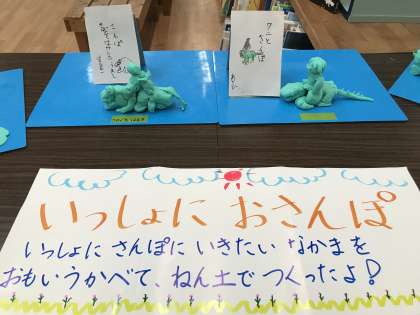 ワニと
さんぽ
いっしょに おさんぽ
いっしょに さんぽに いきたい なかまを
おもいうかべて、ねん土で つくったよ!